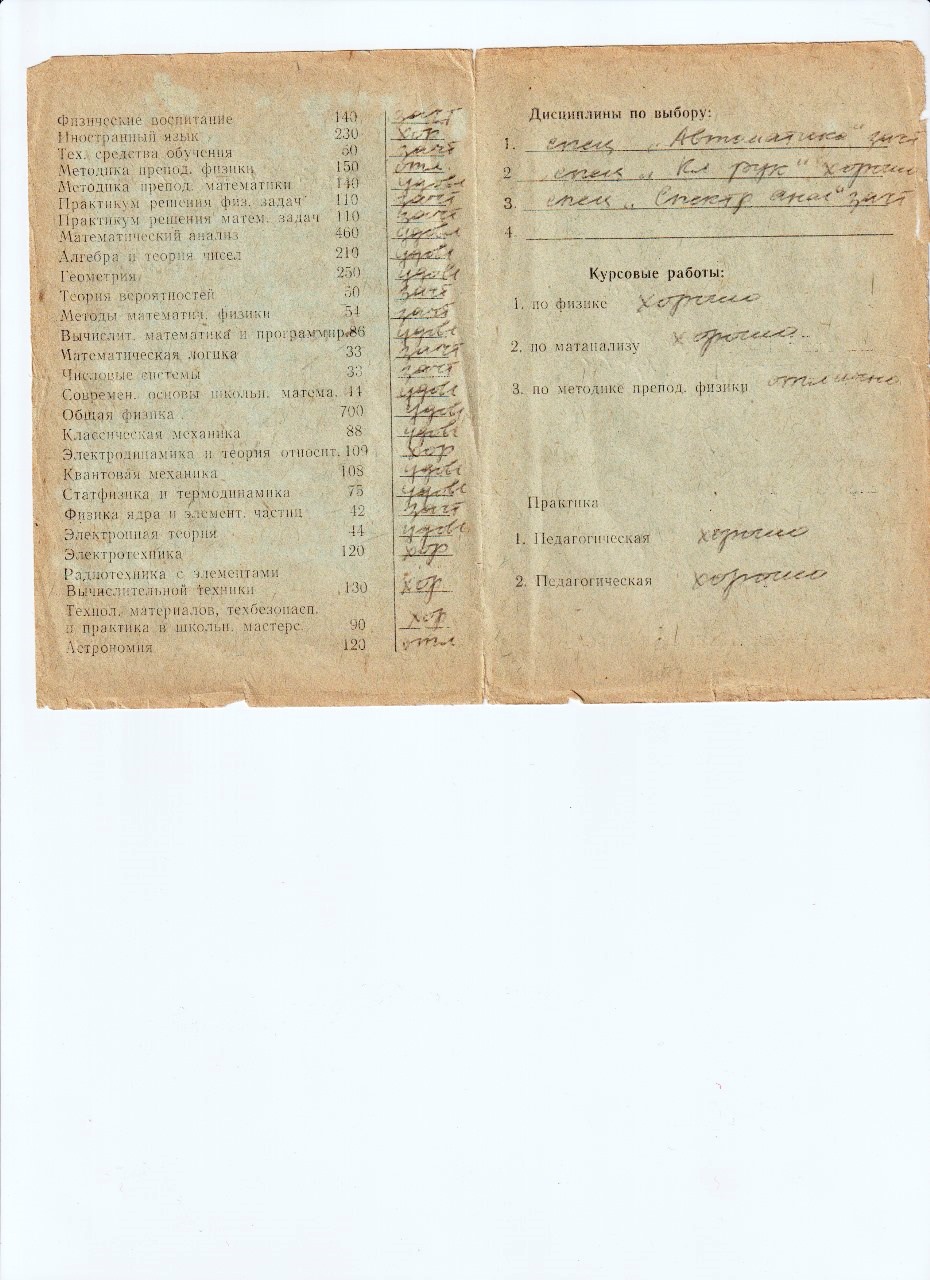 Физические воспитание 140 зачт
Иностранный язык 230 хор
Тех. средства обучения 50 зачт
Методика препод. физики 150 отл
Методика препод. математики 140 удовл
Практикум решения физ. задач 110 зачт
Практикум решения матем. задач 110 зачт
Математический анализ 460 удовл
Алгебра и теория чисел 210 удовл
Геометрия 250 удовл
Теория вероятностей 50 зачт
Методы математич. физики 54 зачт
Вычислит. математика и программир. 86 удовл
Математическая логика 33 зачт
Числовые системы 33 зачт
Современ. основы школьн. матема. 44 удовл
Общая физика 700 удовл
Классическая механика 88 удовл
Электродинамика и теория относит. 109 хор
Квантовая механика 108 удовл
Статфизика и термодинамика 75 удовл
Физика ядра и элемент. частиц 42 зачт
Электронная теория 44 удовл
Электротехника 120 хор
Радиотехника с элементами
Вычислительной техники 130 хор
Технол. материалов, техбезопасп.
и практика в школьн. мастерс. 90 хор
Астрономия 120 отл
Дисциплины по выбору:
1. спец „Автоматика" зачт
2 спец „Кл рук" хорошо
3. спец „Спектр анал" зачт
4.
Курсовые работы:
1. по физике хорошо
2. по матанализу хорошо
3. по методике препод. физики отлично
Практика
1. Педагогическая хорошо
2. Педагогическая хорошо